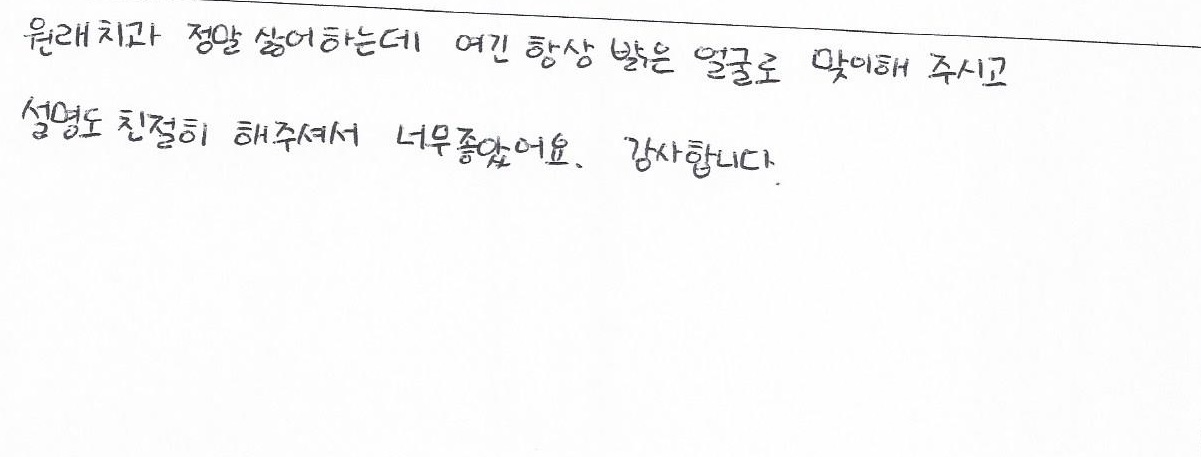 원래치과 정말 싫어하는데 여긴 항상 밝은 얼굴로 맞이해 주시고
설명도 친절히 해주셔서 너무좋았어요. 감사합니다.